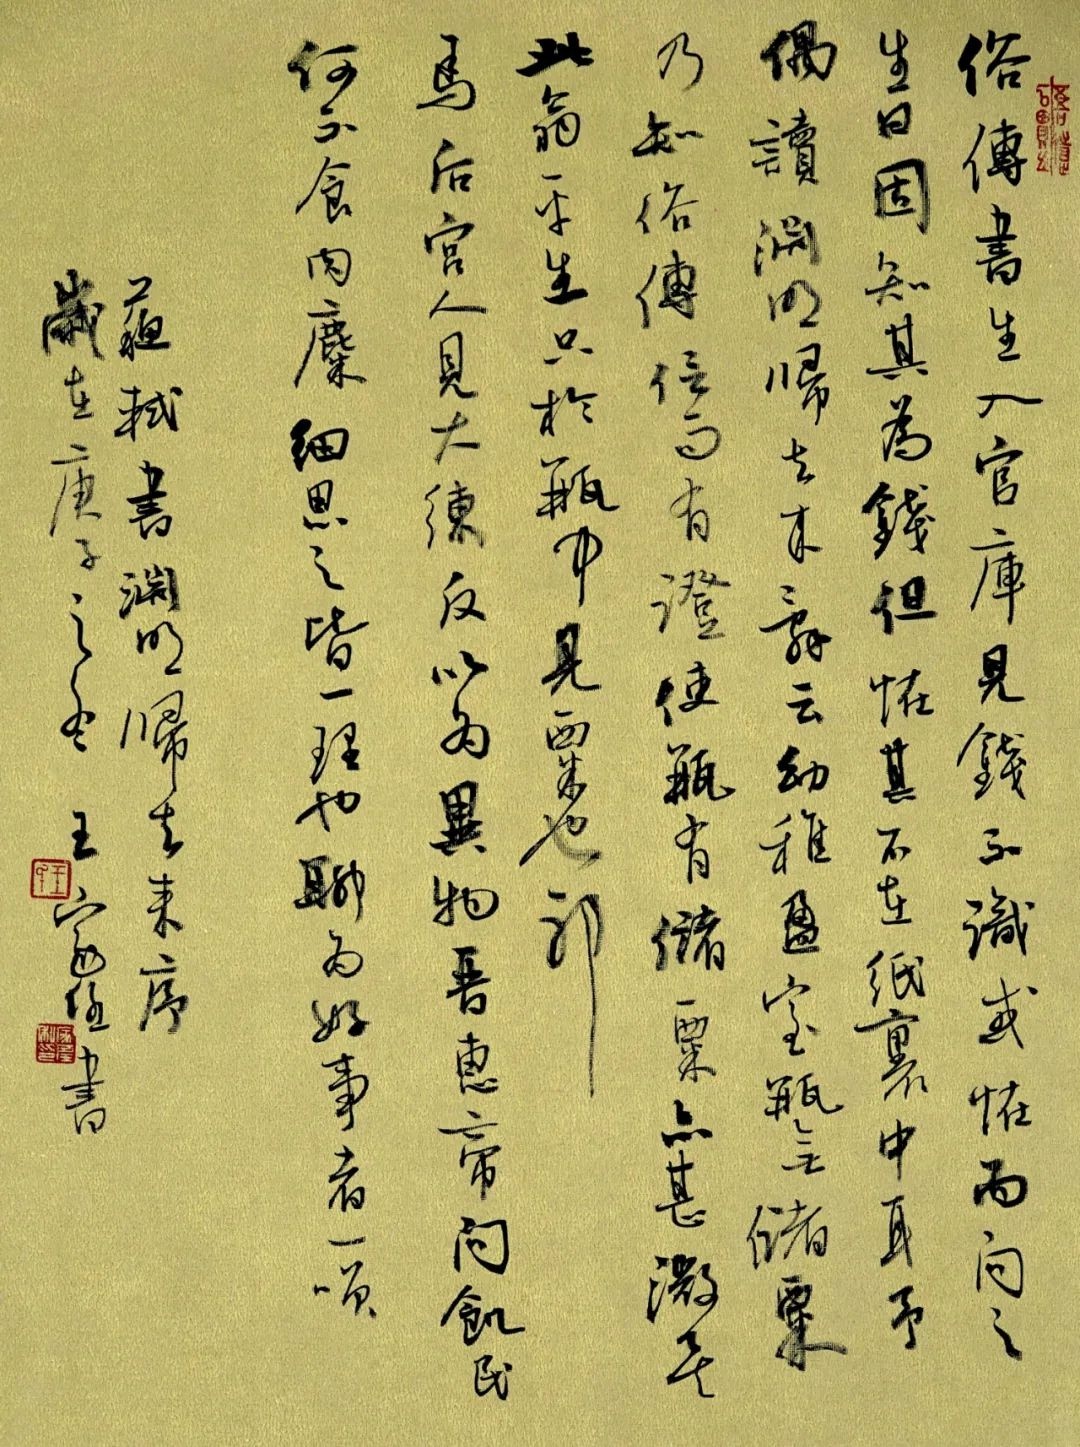 俗傳書生入官庫見錢不識或怪而問之
生曰固知其為錢但怪其不在紙裹中耳予
偶讀淵明歸去來辭云幼稚盈室瓶无儲粟
乃知俗傳信而有證使瓶有儲粟亦甚微矣
此翁平生只於瓶中見粟也耶
馬后宮人見大練反以為異物晉惠帝問飢民
何不食肉麋細思之皆一理也聊為好事者一咲
蘇軾書淵明歸去來序
歲在庚子之冬 王家書